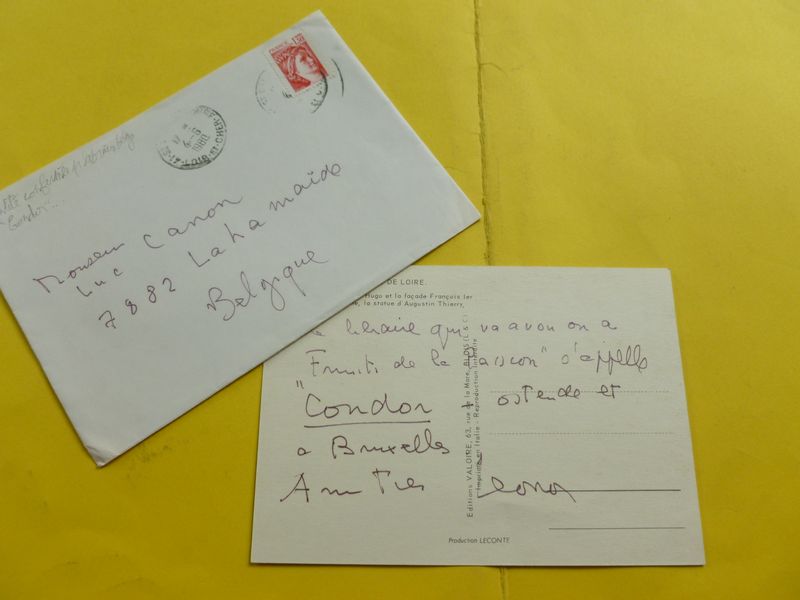 FRANCE 1,30
1980
41-LOIR-ET-CHER
"Condor"...
Monsieur
Luc Canon
7882 Lahamaide
Belgique
DE LOIRE.
Hugo et la façade François Ier
la statue d'Augustin Thierry.
libraire qui va avou on a
Fruits de la Passion" s'appelle
"Condor ostende et
a Bruxelles
Editions VALOIRE, 63, rue de la Mare, BLOIS (L & C)
Imprimé en Italie - Reproduction interdite
Production LECONTE